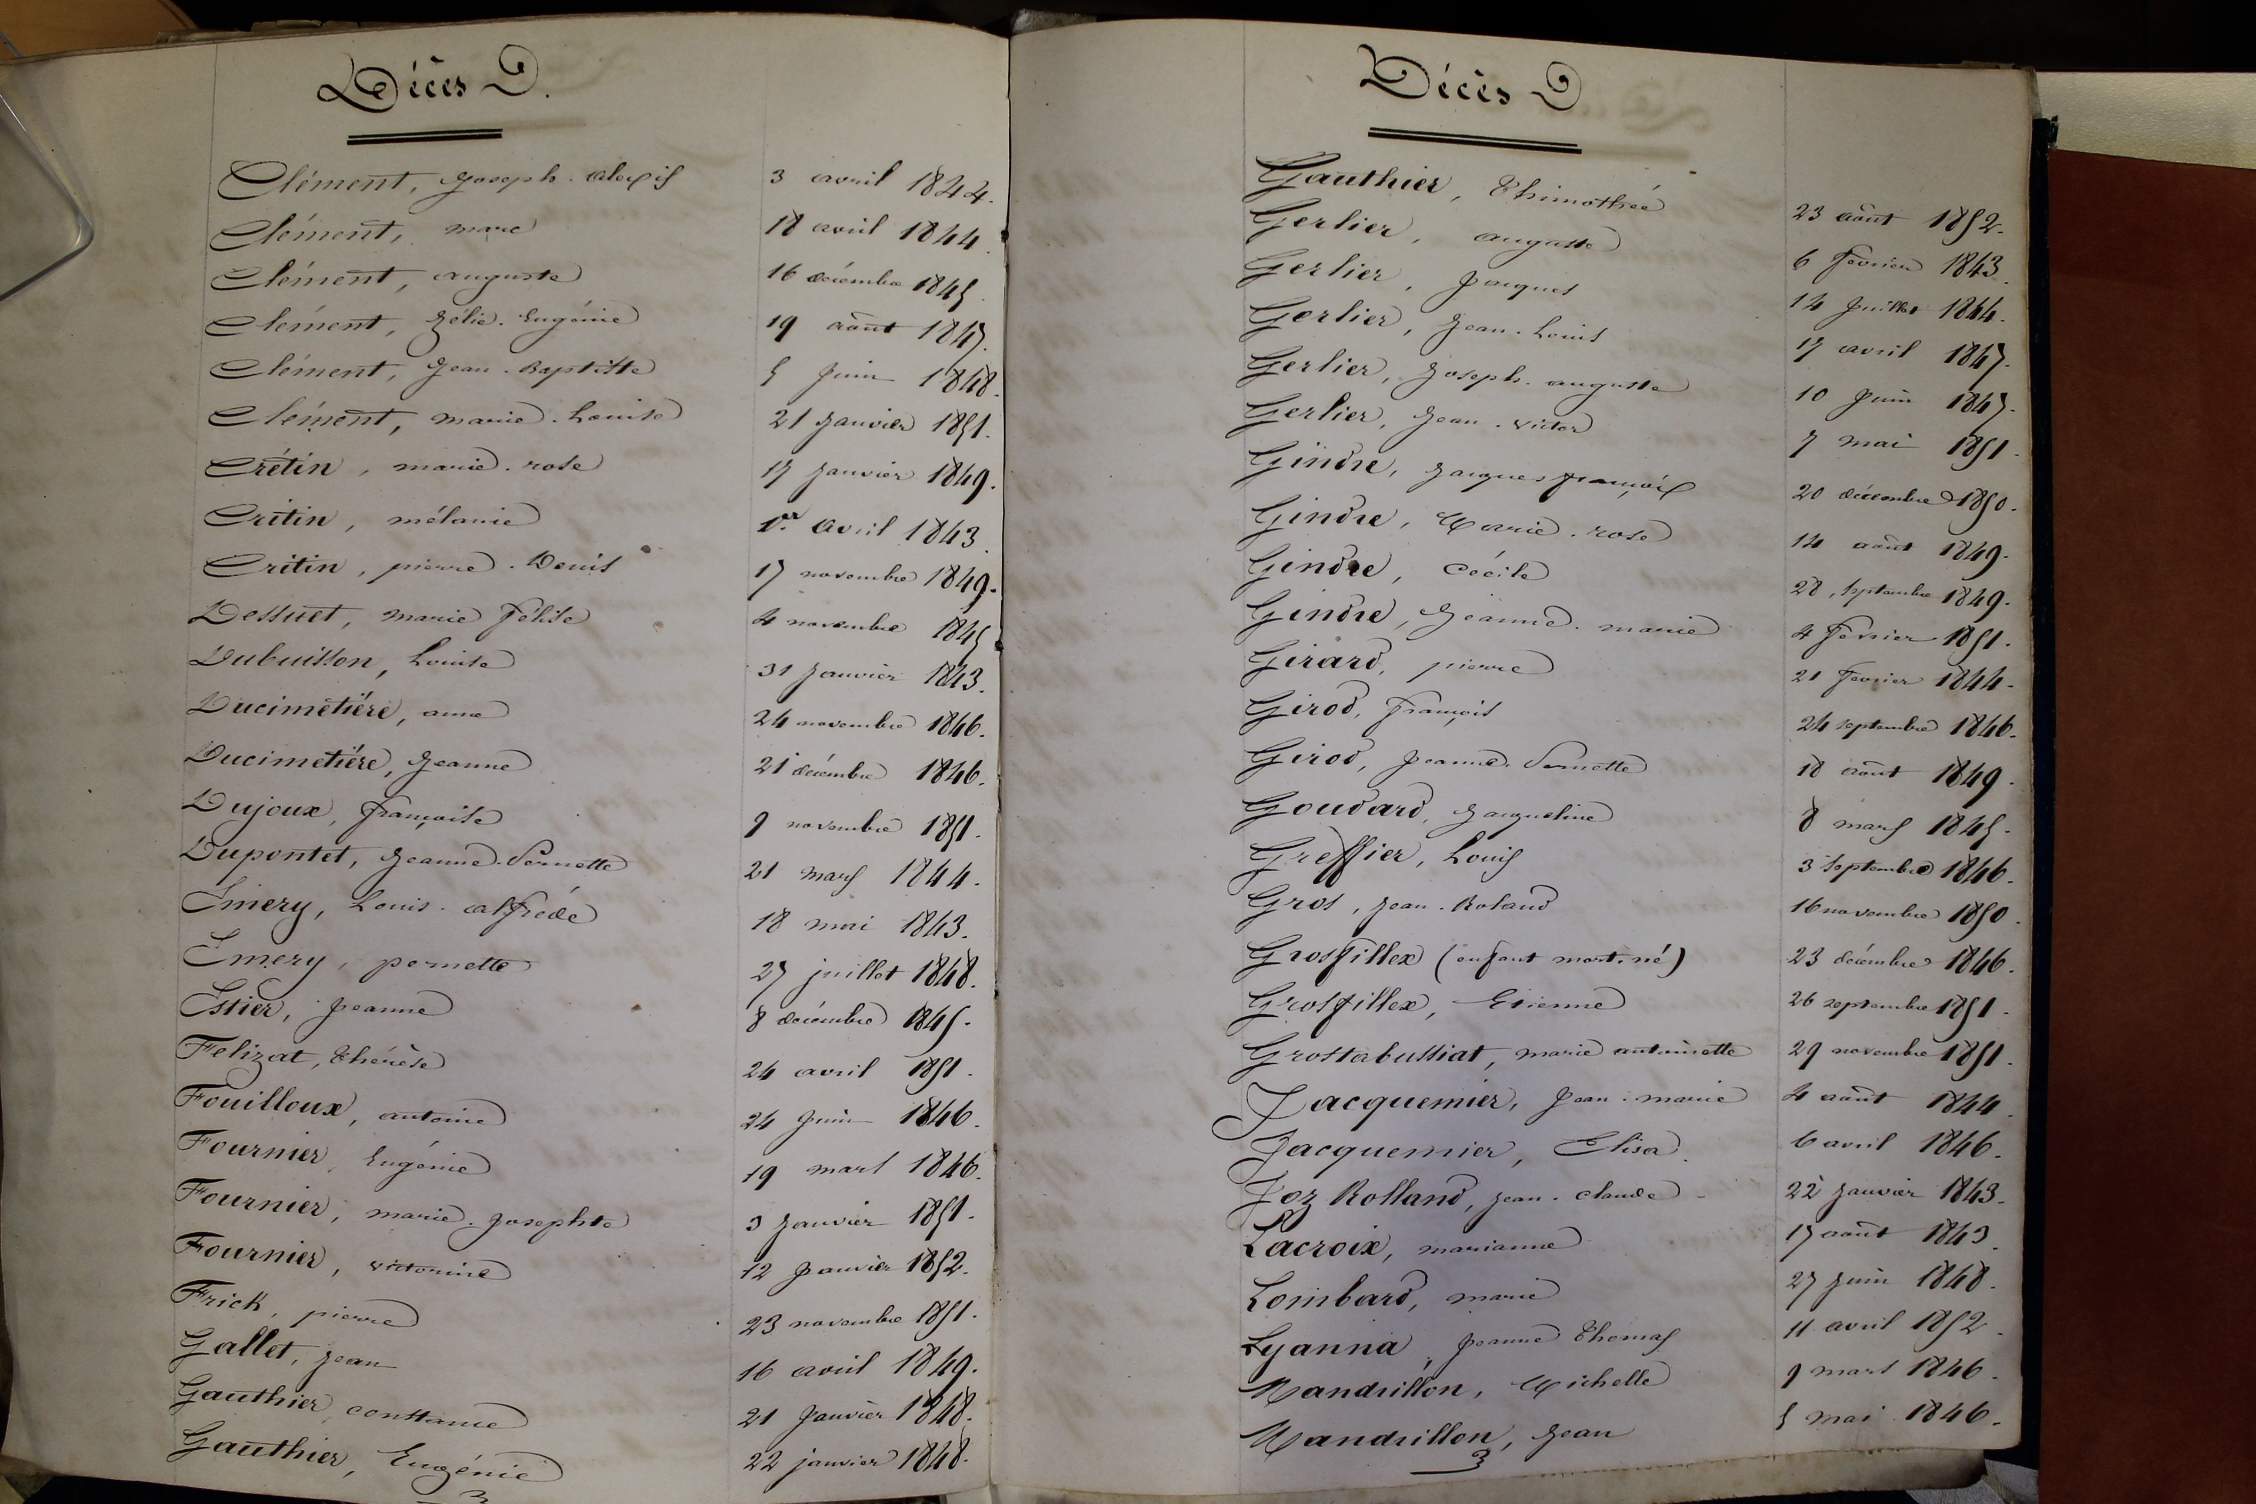 Décès D.
Clément, Joseph. alexis 3 avril 1844.
Clément, marc 18 avril 1844.
Clément, auguste 16 décembre 1845.
Clément, Zélie. Eugénie 19 août 1847.
Clément, Jean. Baptiste 5 Juin 1848.
Clément, marie. Louise 21 Janvier 1851.
Crétin, marie. rose 17 Janvier 1849.
Crétin, mélanie 1er. avril 1843.
Crétin, pierre. Denis 17 novembre 1849.
Dessuet, marie félise 4 novembre 1845
Dubuisson, Louise 31 Janvier 1843.
Ducimetière, anne 24 novembre 1846.
Ducimetière, Jeanne 21 décembre 1846.
Dujoux, françoise 9 novembre 1851.
Dupontet, Jeanne. Pernette 21 mars 1844.
Emery, Louis. alfrède 18 mai 1843.
Emery, pernette 27 juillet 1848.
Estier, Jeanne 8 décembre 1845.
Felizat, Thérèse 24 avril 1851.
Fouilloux, antoine 24 Juin 1846.
Fournier, Eugénie 19 mars 1846.
Fournier, marie. Josephte 3 Janvier 1851.
Fournier, victorine 12 Janvier 1852.
Frick, pierre 23 novembre 1851.
Gallet, Jean 16 avril 1849.
Gauthier, constance 21 Janvier 1848.
Gauthier, Eugénie 22 janvier 1848.
Décès D
Gauthier, Thimothée 23 août 1852.
Gerlier, auguste 6 février 1843.
Gerlier, Jacques 14 Juillet 1844.
Gerlier, Jean. Louis 17 avril 1847.
Gerlier, Joseph. auguste 10 Juin 1847.
Gerlier, Jean. victor 7 mai 1851.
Gindre, Jacques françois 20 décembre 1850.
Gindre, Marie. rose 14 août 1849.
Gindre, Cécile 28 septembre 1849.
Gindre, Jeanne. marie 4 février 1851.
Girard, pierre 21 février 1844.
Girod, françois 24 septembre 1846.
Girod, Jeanne. Pernette 18 août 1849.
Goudard, Jacqueline 8 mars 1845.
Greffier, Louis 3 septembre 1846.
Gros, Jean. Roland 16 novembre 1850.
Grosfillex (enfant mort. né) 23 décembre 1846.
Grosfillex, Etienne 26 septembre 1851.
Grostabussiat, marie antoinette 29 novembre 1851.
Jacquemier, Jean. marie 4 août 1844.
Jacquemier, Elisa. 6 avril 1846.
Joz Rolland, Jean. claude 22 Janvier 1843.
Lacroix, marianne 17 août 1843.
Lombard, marie 27 Juin 1848.
Lyanna, Jeanne Thomas 11 avril 1852.
Mandrillon, Michelle 9 mars 1846.
Mandrillon, Jean 5 mai 1846.